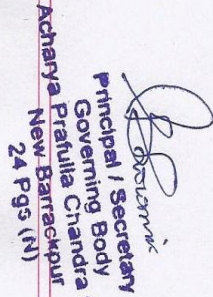 Principal / Secretary
Governing Body
Acharya Prafulla Chandra
New Barrackpur
24 Pgs (N)